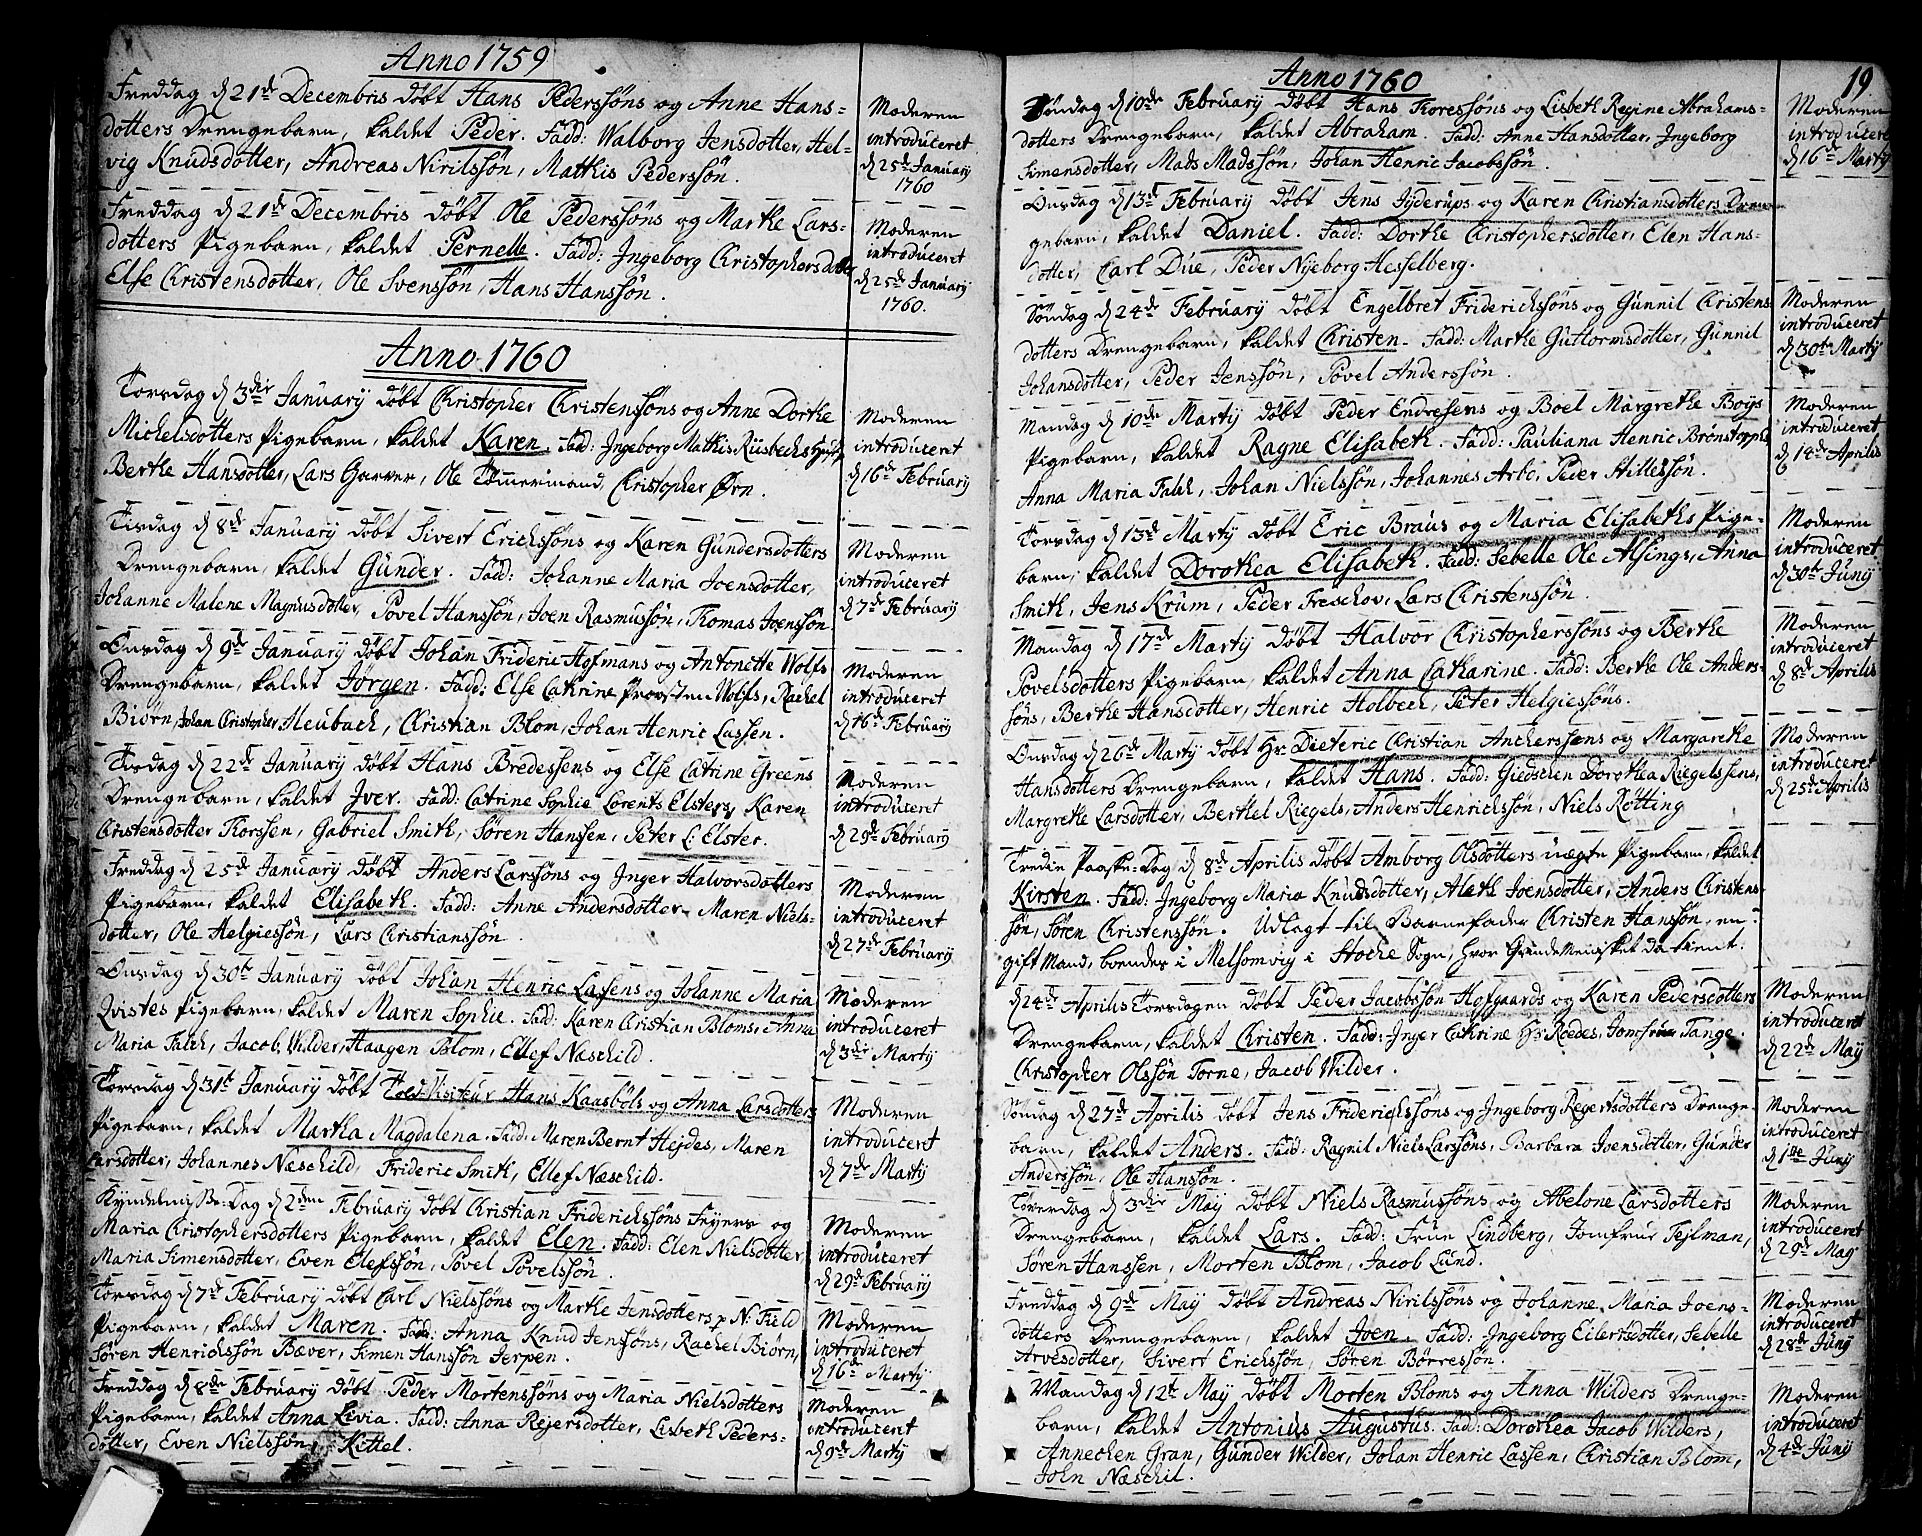 Anno 1759
Freddag d 21de Decembris döbt Hans Pederssöns og Anne Hans-
dotters Drengebarn, kaldet Peder. Fadd: Walborg Jensdotter, Hel-
vig Knudsdotter, Andreas Nirilssön, Mathis Pederssön.
Moderen
introduceret
d 25de January
1760
Freddag d 21de Decembris döbt Ole Pederssöns og Marthe Lars-
dotters Pigebarn, kaldet Pernelle. Fadd: Ingeborg Christophersdotter
Else Christensdotter, Ole Svenssön, Hans Hanssön.
Moderen
introduceret
d 25de January
1760.
Anno 1760
Torsdag d 3die January döbt Christopher Christenssöns og Anne Dorthe
Michelsdotters Pigebarn, kaldet Karen. Fadd: Ingeborg Mathis Riisbechs
Berthe Hansdotter, Lars Garver, Ole Tömermand, Christopher Ørn.
Moderen
introduceret
d 16de February
Tisdag d 8de January döbt Sivert Erichssöns og Karen Gundersdotters
Drengebarn, kaldet Gunder. Fadd: Johanne Maria Joensdotter,
Johanne Malene Magnusdotter, Povel Hanssön, Joen Rasmussön, Thomas Joenssön.
Moderen
introduceret
d 7de February
Onsdag d 9de January döbt Johan Frideric Hofmans og Antonette Wolfs
Drengebarn, kaldet Jörgen. Fadd: Else Cathrine Provsten Wolfs, Rachel
Biørn, Johan Christopher Heuback, Christian Blom, Johan Henric Lassen.
Moderen
introduceret
d 16de February
Tisdag d 22de January döbt Hans Bredessens og Else Catrine Greens
Drengebarn, kaldet Iver. Fadd: Catrine Sophie Lorents Elsters, Karen
Christensdotter Thorssen, Gabriel Smith, Sören Hanssen, Peter L: Elster.
Moderen
introduceret
d 29de February
Freddag d 25de January döbt Anders Larssöns og Inger Halvorsdotters
Pigebarn, kaldet Elisabeth. Fadd: Anne Andersdotter, Maren Niels-
dotter, Ole Helgiessön, Lars Christianssön.
Moderen
introduceret
d 27de February
Onsdag d 30te January döbt Johan Henric Lassens og Johanne Maria
Qvistes Pigebarn, kaldet Maren Sophie. Fadd: Karen Christian Bloms, Anna
Maria Falch, Jacob Wilder, Haagen Blom, Ellef Næschild.
Moderen
introduceret
d 3die Marty
Torsdag d 31te January döbt Told-Visiteur Hans Kaasböls og Anna Larsdotters
Pigebarn, kaldet Martha Magdalena. Fadd: Maren Bernt Hejdes, Maren
Larsdotter, Johannes Næschild, Frideric Smith, Ellef Næschild.
Moderen
introduceret
d 7de Marty
Kyndelmisse-Dag d 2den February döbt Christian Friderichssöns Fryers og
Maria Christophersdotters Pigebarn, kaldet Elen. Fadd: Elen Nielsdotter,
Maria Simensdotter, Even Elefssön, Povel Povelssön.
Moderen
introduceret
d 29de February
Torsdag d 7de February döbt Carl Nielssöns og Marthe Jensdotters p N: Field
Pigebarn, kaldet Maren. Fadd: Anna Knud Jenssöns, Rachel Biørn,
Sören Henrichssön Bæver, Simen Hanssön Jerpen.
Moderen
introduceret
d 16de Marty
Freddag d 8de February döbt Peder Mortenssöns og Maria Nielsdotters
Pigebarn, kaldet Anna Livia. Fadd: Anna Rejersdotter, Lisbeth Peders-
dotter, Even Nielssön, Kittel.
Moderen
introduceret
d 9de Marty
Anno 1760
19
Söndag d 10de February döbt Hans Thoressöns og Lisbeth Regine Abrahams-
dotters Drengebarn, kaldet Abraham. Fadd: Anne Hansdotter, Ingeborg
Simensdotter, Mads Madssön, Johan Henric Jacobssön.
Moderen
introduceret
d 16de Marty
Onsdag d 13de February döbt Jens Jyderups og Karen Christiansdotters Dren-
gebarn, kaldet Daniel. Fadd: Dorthe Christophersdotter, Elen Hans-
dotter, Carl Due, Peder Nyeborg Hesselberg.
Söndag d 24de February döbt Engelbret Friderichssöns og Gunnil Christens-
dotters Drengebarn, kaldet Christen. Fadd: Marthe Guttormsdotter, Gunnil
Johansdotter, Peder Jenssön, Povel Anderssön.
Moderen
introduceret
d 30te Marty
Mandag d 10de Marty döbt Peder Endresens og Boel Margrethe Boijs
Pigebarn, kaldet Ragne Elisabeth. Fadd: Pauliana Henric Brønstorphs
Anna Maria Falch, Johan Nielssön, Johannes Arbo, Peter Stillessön.
Moderen
introduceret
d 14de Aprilis
Torsdag d 13de Marty döbt Eric Braus og Maria Elisabeths Pige-
barn, kaldet Dorothea Elisabeth. Fadd: Sebelle Ole Alsings, Anna
Smith, Jens Krum, Peder Freschov, Lars Christenssön.
Moderen
introduceret
d 30te Juny
Mandag d 17de Marty döbt Halvor Christopherssöns og Berthe
Povelsdotters Pigebarn, kaldet Anna Catharine. Fadd: Berthe Ole Anders-
söns, Berthe Hansdotter, Henric Holbech, Peter Helgiessöns.
Moderen
introduceret
d 8de Aprilis
Onsdag d 26de Marty döbt Hr. Dieteric Christian Ancherssens og Margarethe
Hansdotters Drengebarn, kaldet Hans. Fadd: Giedschen Dorothea Riegelssens,
Margrethe Larsdotter, Berthel Riegels, Anders Henrichssön, Niels Rötting
Moderen
introduceret
d 25de Aprilis
Tredie Paaske-Dag d 8de Aprilis döbt Amborg Olsdotters uægte Pigebarn, kaldet
Kirsten. Fadd: Ingeborg Maria Knudsdotter, Aleth Joensdotter, Anders Christens-
sön, Sören Christenssön. Udlagt til Barnefader Christen Hanssön, en
gift Mand, boendes i Melsomvig i Stocke Sogn, hvor Qvindemennisket da tient.
d 24de Aprilis Torsdagen döbt Peder Jacobssön Hofgaards og Karen Pedersdotters
Drengebarn, kaldet Christen. Fadd: Inger Cathrine Hr Roedes, Jomfrue Tange.
Christopher Olssön Torne, Jacob Wilder.
Moderen
introduceret
d 22de May
Söndag d 27de Aprilis döbt Jens Friderichssöns og Ingeborg Regertsdotters Drenge-
barn, kaldet Anders. Fadd: Ragnil Niels Larssöns, Barbara Joensdotter, Gunder
Anderssön, Ole Hanssön.
Moderen
introduceret
d 1ste Juny
Löverdag d 3die May döbt Niels Rasmussöns og Abelone Larsdotters
Drengebarn, kaldet Lars. Fadd: Frue Lindberg, Jomfrue Fejlman,
Sören Hanssen, Morten Blom, Jacob Lund.
Moderen
introduceret
d 29de May
Freddag d 9de May döbt Andreas Nirilssöns og Johanne Maria Joens-
dotters Drengebarn, kaldet Joen. Fadd: Ingeborg Eilertsdotter, Sebelle
Arvesdotter, Sivert Erichssön, Sören Börressön.
Moderen
introduceret
d 28de Juny
Mandag d 12te May döbt Morten Bloms og Anna Wilders Drenge-
barn, kaldet Antonius Augustus. Fadd: Dorothea Jacob Wilders,
Annechen Gran, Gunder Wilder, Johan Henric Lassen, Christian Blom,
John Næschil.
Moderen
introduceret
d 4de Juny